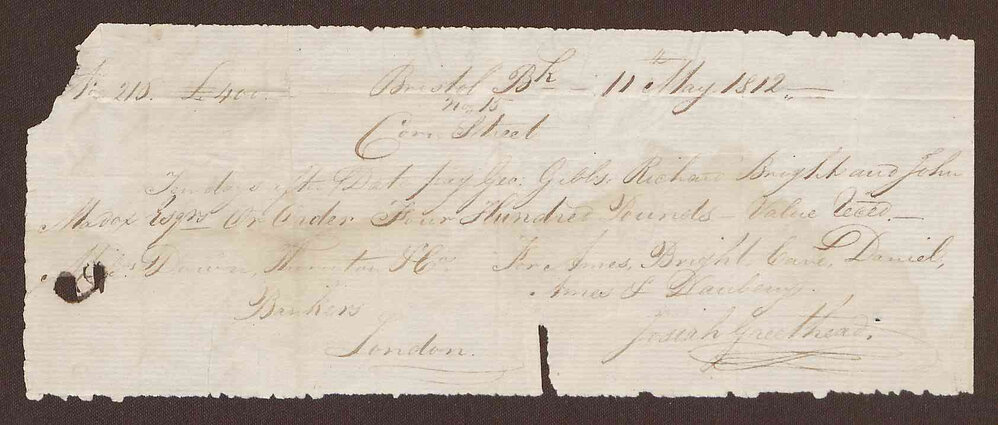 No 215. £400. Bristol Bk — 11th May 1812. —
No. 15
Corn Street
Ten days after Dat pay Geo: Gibbs, Richard Bright and John
Maddox Esqrs Or Order Four Hundred Pounds — Value Reced. —
Down, Thornton & Co. For Ames, Bright Cave, Daniel,
Bankers Ames & Daubeny.
London. Josiah Greethead.